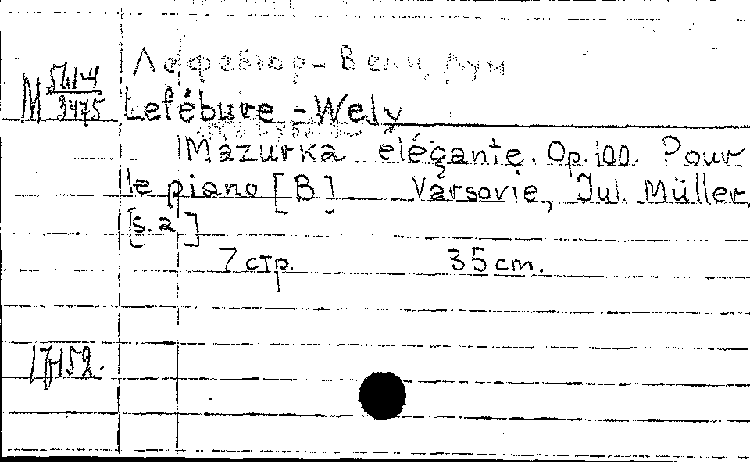 Лефебюр-Вели, Луи
М 561-4
3475
Lefébure-Wely
Mazurka elégante. Op. 100. Pour
le piano [B] Varsovie, Jul. Müller,
[s. a.]
7 стр. 35 cm.